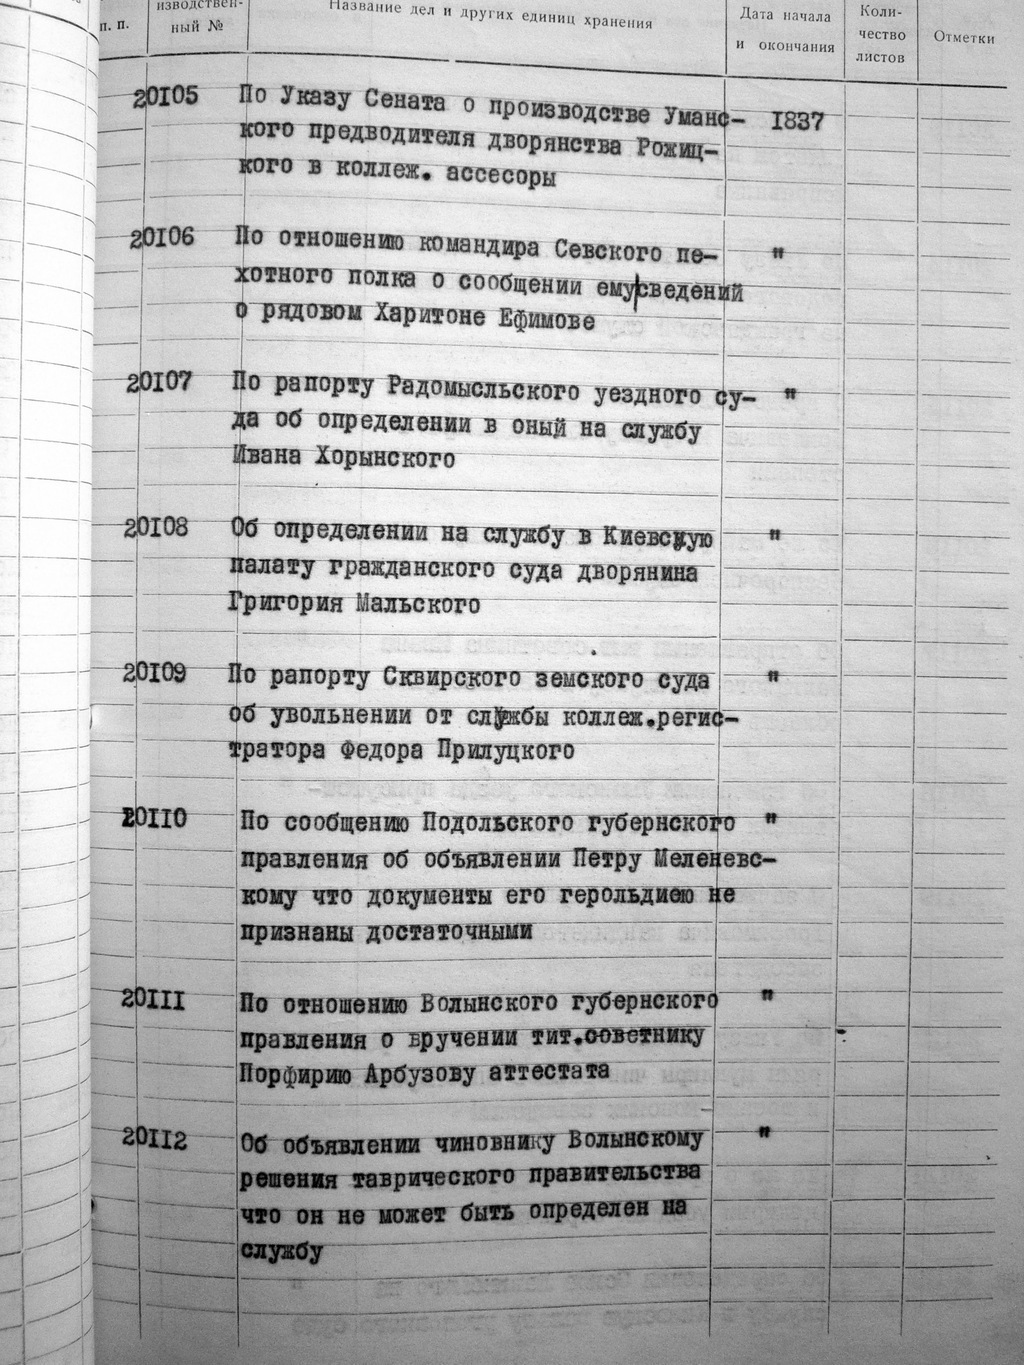 п. п.
изводствен-
ный №
Название дел и других единиц хранения
Дата начала
и окончания
Коли-
чество
листов
Отметки
20I05 По Указу Сената о производстве Уманс- I837
кого предводителя дворянства Рожиц-
кого в коллеж. ассесоры
20I06 По отношению командира Севского пе- "
хотного полка о сообщении ему сведений
о рядовом Харитоне Ефимове
20I07 По рапорту Радомысльского уездного су- "
да об определении в оный на службу
Ивана Хорынского
20I08 Об определении на службу в Киевскую "
палату гражданского суда дворянина
Григория Мальского
20I09 По рапорту Сквирского земского суда "
об увольнении от службы коллеж.регис-
тратора Федора Прилуцкого
20II0 По сообщению Подольского губернского "
правления об объявлении Петру Меленевс-
кому что документы его герольдиею не
признаны достаточными
20III По отношению Волынского губернского "
правления о вручении тит.советнику
Порфирию Арбузову аттестата
20II2 Об объявлении чиновнику Волынскому "
решения таврического правительства
что он не может быть определен на
службу